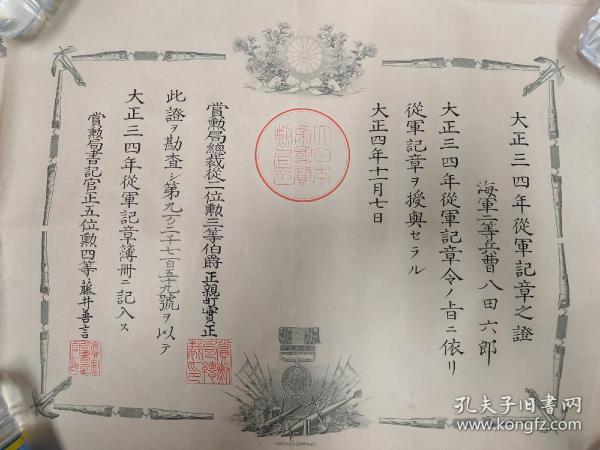 大正三四年從軍記章之證
海軍二等兵曹八田六郎
大正三四年從軍記章令ノ旨ニ依リ
從軍記章ヲ授與セラル
大正四年十一月七日
大日本
帝國賞
勲局印
賞勲局總裁從二位勲三等伯爵正親町實正
此證ヲ勘査シ第九万二千七百五十九號ヲ以テ
大正三四年從軍記章簿冊ニ記入ス
賞勲局書記官正五位勲四等藤井善言
孔夫子旧书网
www.kongfz.com